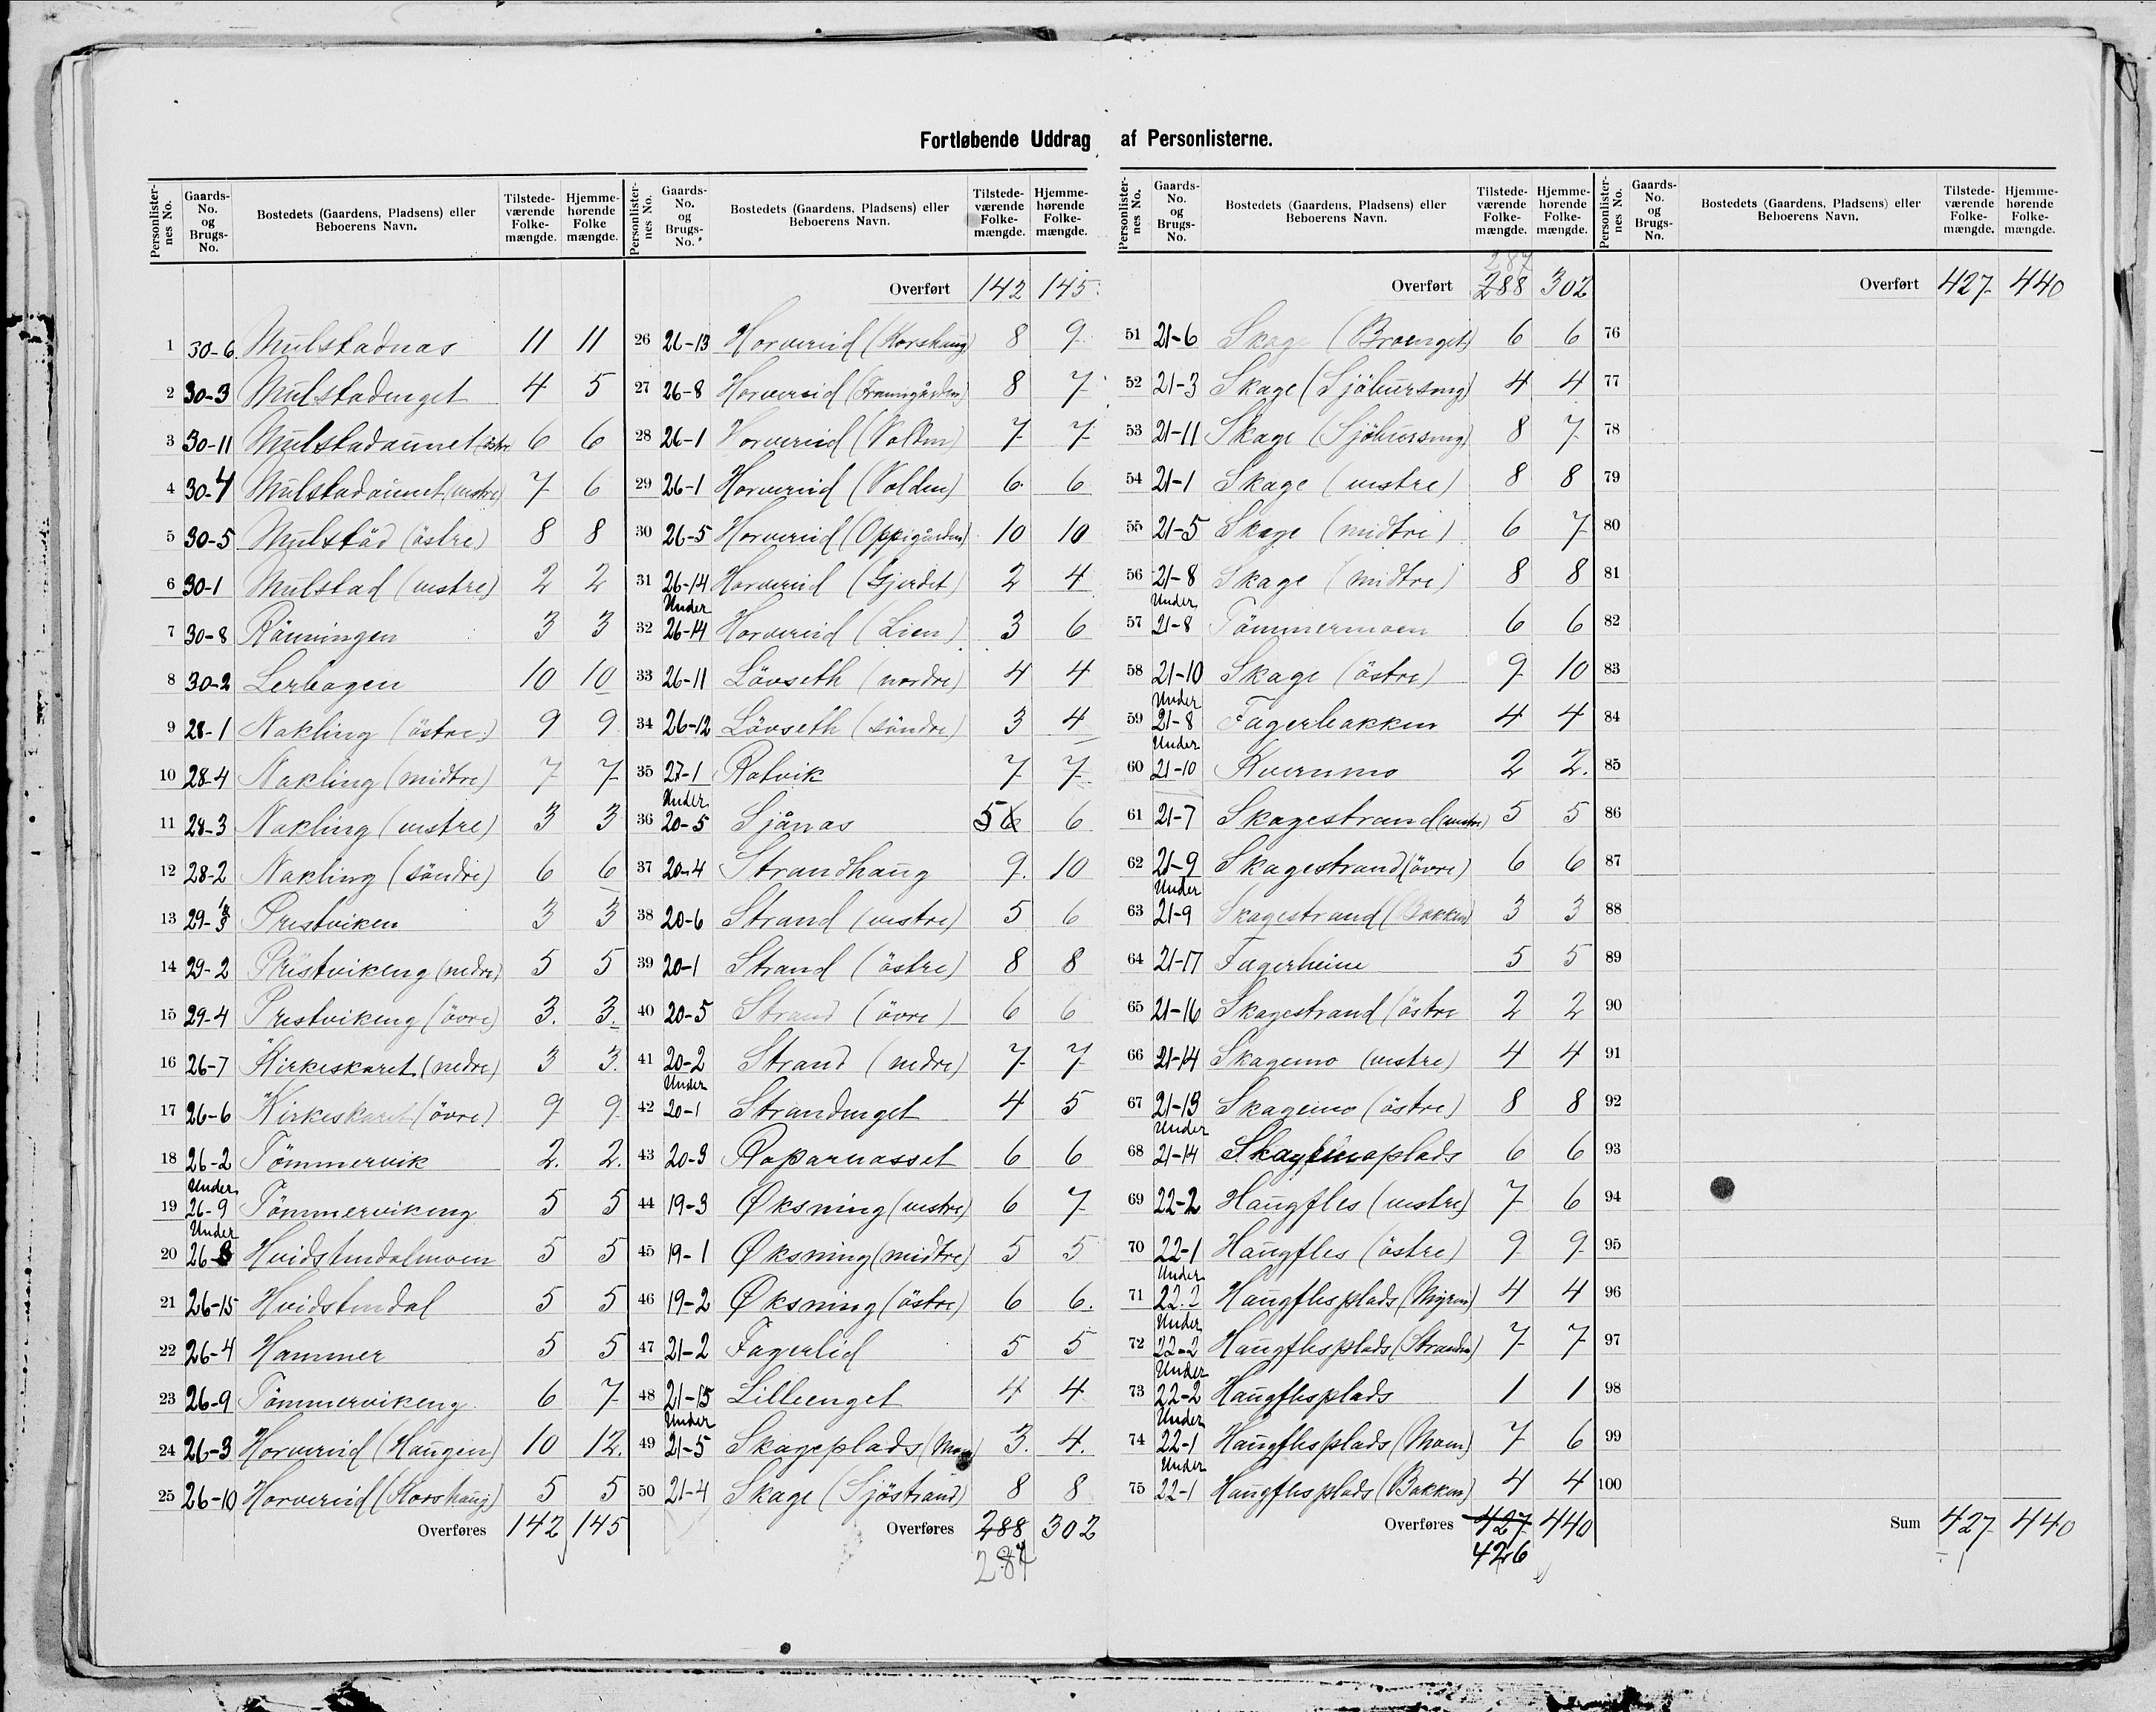 Fortløbende Uddrag af Personlisterne.
Personlisternes No. Gaards-No. og Brugs-No. Bostedets (Gaardens, Pladsens) eller Beboerens Navn. Tilstedeværende Folkemængde. Hjemmehørende Folkemængde.
1 30-6 Mulstadnas 11 11
2 30-3 Mulstadenget 4 5
3 30-11 Mulstadaunet (östre) 6 6
4 30-4 Mulstadaunet (vestre) 7 6
5 30-5 Mulstad (östre) 8 8
6 30-1 Mulstad (vestre) 2 2
7 30-8 Rånningen 3 3
8 30-2 Lerbagen 10 10
9 28-1 Nakling (östre) 9 9
10 28-4 Nakling (midtre) 7 7
11 28-3 Nakling (vestre) 3 3
12 28-2 Nakling (söndre) 6 6
13 29-3 Prestviken 3 3
14 29-2 Prestvikeng (nedre) 5 5
15 29-4 Prestvikeng (övre) 3. 3.
16 26-7 Kirkeskaret (nedre) 3 3.
17 26-6 Kirkeskaret (övre) 9 9
18 26-2 Tömmervik 2. 2.
19 Under 26-9 Tömmervikeng 5 5
20 Under 26-8 Hvidstendalmoen 5 5
21 26-15 Hvidstendal 5 5
22 26-4 Hammer 5 5
23 26-9 Tömmervikeng 6 7
24 26-3 Horvereid (Haugen) 10 12.
25 26-10 Horvereid (Korshaug) 5 5
Overføres 142 145
Overført 142 145
26 26-13 Horvereid (Korshaug) 8 9
27 26-8 Horvereid (Framigården) 8 7
28 26-1 Horvereid (Volden) 7 7
29 26-1 Horvereid (Volden) 6 6
30 26-5 Horvereid (Oppigården) 10 10
31 26-14 Horvereid (Gjerdet) 2 4
32 Under 26-14 Horvereid (Lien) 3 6
33 26-11 Lövseth (nordre) 4 4
34 26-12 Lövseth (söndre) 3 4
35 27-1 Ratvik 7 7
36 Under 20-5 Sjånas 5 6 6
37 20-4 Strandhaug 9. 10
38 20-6 Strand (vestre) 5 6
39 20-1 Strand (östre) 8 8
40 20-5 Strand (övre) 6 6
41 20-2 Strand (nedre) 7 7
42 Under 20-1 Strandenget 4 5
43 20-3 Raparnasset 6 6
44 19-3 Øksning (vestre) 6 7
45 19-1 Øksning (midtre) 5 5
46 19-2 Øksning (östre) 6 6.
47 21-2 Fagerlid 5 5
48 21-15 Lilleenget 4 4
49 Under 21-5 Skageplads (Moen) 3. 4.
50 21-4 Skage (Sjöstrand) 8 8
Overføres 288 302
287
287
Overført 288 302
51 21-6 Skage (Braenget) 6 6
52 21-3 Skage (Sjöbursmg) 4 4
53 21-11 Skage (Sjöbursmg) 8 7
54 21-1 Skage (vestre) 8 8
55 21-5 Skage (midtre) 6 7
56 21-8 Skage (midtre) 8 8
57 Under 21-8 Tömmermoen 6 6
58 21-10 Skage (östre) 9 10
59 Under 21-8 Fagerbakken 4 4
60 Under 21-10 Kvernmo 2 2.
61 21-7 Skagestrand (vestre) 5 5
62 21-9 Skagestrand (övre) 6 6
63 Under 21-9 Skagestrand (Bakken) 3 3
64 21-17 Fagerheim 5 5
65 21-16 Skagestrand (östre 2 2
66 21-14 Skagemo (vestre) 4 4
67 21-13 Skagemo (östre) 8 8
68 Under 21-14 Skagemoplads 6 6
69 22-2 Haugfles (vestre) 7 6
70 22-1 Haugfles (östre) 9 9
71 Under 22-2 Haugflesplads (Myren) 4 4
72 Under 22-2 Haugflesplads (Stranden) 7 7
73 Under 22-2 Haugflesplads 1 1
74 Under 22-1 Haugflesplads (Moen) 7 6
75 Under 22-1 Haugflesplads (Bakken) 4 4
Overføres 427 440
426
Overført 427 440
76
77
78
79
80
81
82
83
84
85
86
87
88
89
90
91
92
93
94
95
96
97
98
99
100
Sum 427 440